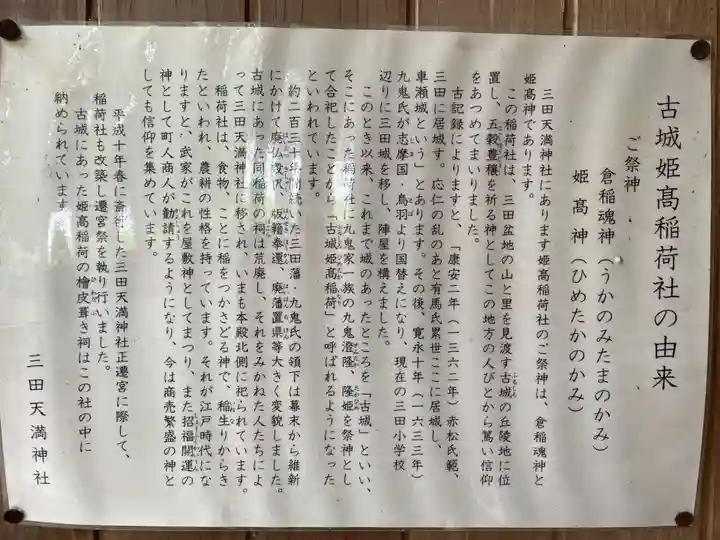 古城姫髙稲荷社の由来
ご祭神
倉稲魂神（うかのみたまのかみ）
姫髙神（ひめたかのかみ）
三田天満神社にあります姫髙稲荷社のご祭神は、倉稲魂神と
姫髙神であります。
この稲荷社は、三田盆地の山と里を見渡す古城の丘陵地に位
置し、五穀豊穣を祈る神としてこの地方の人びとから篤い信仰
をあつめてまいりました。
古記録によりますと、「康安二年（一三六二年）赤松氏範、
三田に居城す。応仁の乱のあと有馬氏累世ここに居城し、
車瀬城という」とあります。その後、寛永十年（一六三三年）
九鬼氏が志摩国・鳥羽より国替えになり、現在の三田小学校
辺りに三田城を移し、陣屋を構えました。
このとき以来、これまで城のあったところを「古城」といい、
そこにあった稲荷社に九鬼家一族の九鬼澄隆、隆姫を祭神とし
て合祀したことから「古城姫髙稲荷」と呼ばれるようになった
といわれています。
約二百三十年間続いた三田藩・九鬼氏の領下は幕末から維新
にかけて廃仏毀釈、版籍奉還、廃藩置県等大きく変貌しました。
古城にあった同稲荷の祠は荒廃し、それをみかねた人たちによ
って三田天満神社に移され、いまも本殿北側に祀られています。
稲荷社は、食物、ことに稲をつかさどる神で、稲生りからき
たといわれ、農耕の性格を持っています。それが江戸時代にな
りますと、武家がこれを屋敷神としてまつり、また招福開運の
神として町人商人が勧請するようになり、今は商売繁盛の神と
しても信仰を集めています。
平成十年春に斎行した三田天満神社正遷宮に際して、
稲荷社も改築し遷宮祭を執り行いました。
古城にあった姫髙稲荷の檜皮葺き祠はこの社の中に
納められています。
三田天満神社